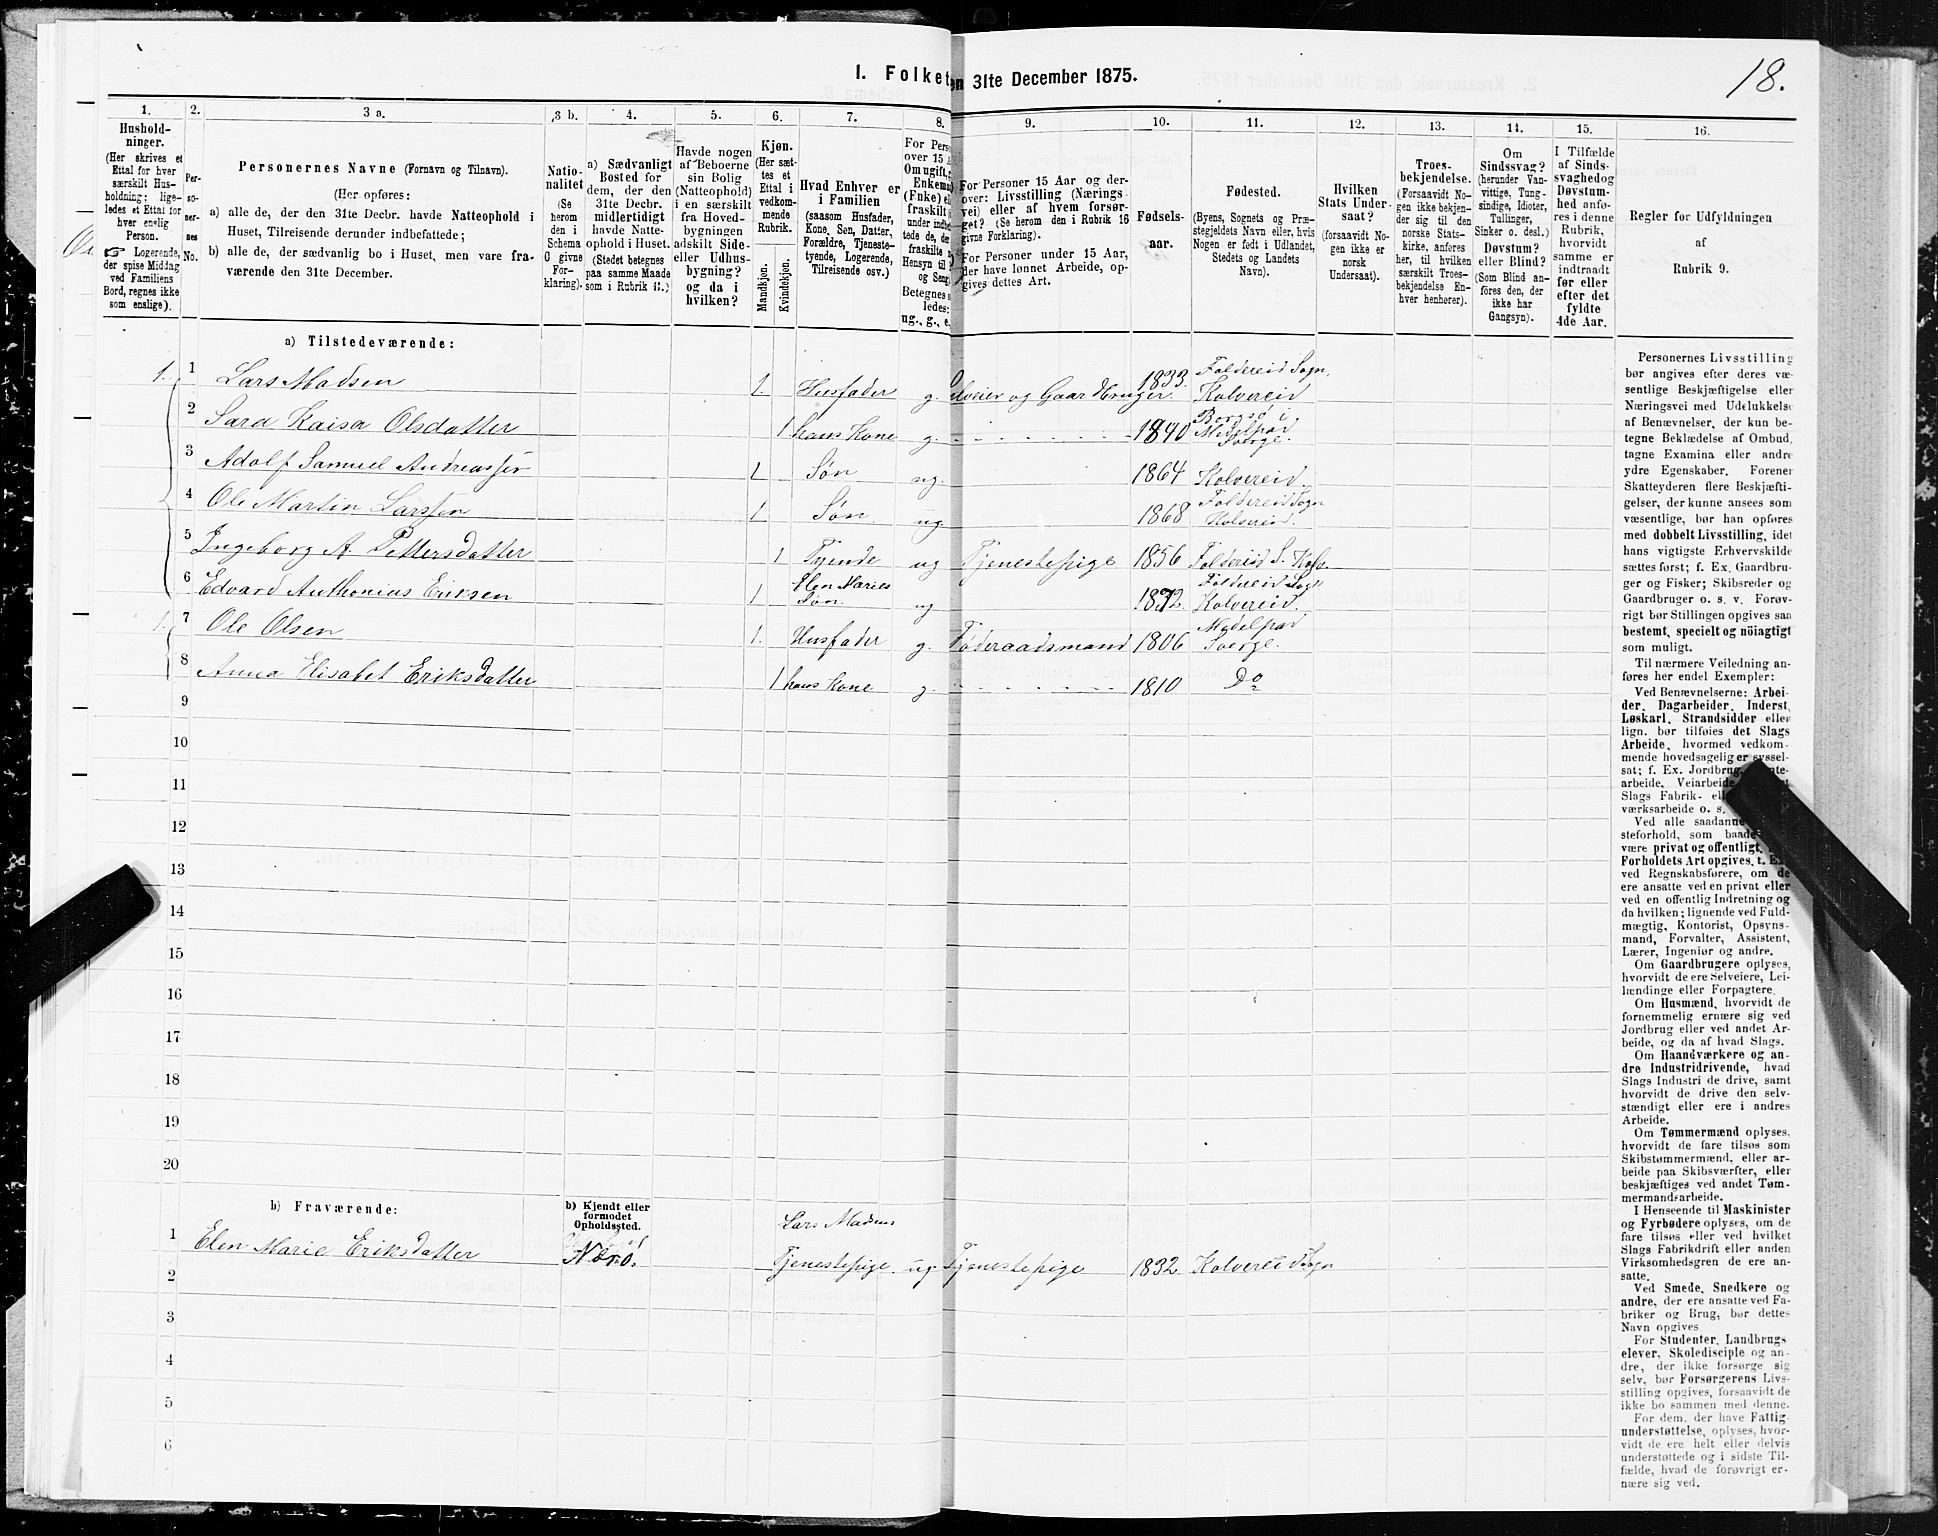 18.
I. Folketen 31te December 1875.
1.
2.
3 a.
3 b.
4.
5.
6.
7.
8.
9.
10.
11.
12.
13.
14.
15.
16.
Hushold-
ninger.
(Her skrives et
Ettal for hver
særskilt Hus-
holdning; lige-
ledes et Ettal for
hver enslig
Person.
☞ Logerende,
der spise Middag
ved Familiens
Bord, regnes ikke
som enslige).
Per-
so-
ner-
nes
No.
Personernes Navne (Fornavn og Tilnavn).
(Her opføres:
a) alle de, der den 31te Decbr. havde Natteophold i
Huset, Tilreisende derunder indbefattede;
b) alle de, der sædvanlig bo i Huset, men vare fra-
værende den 31te December.
Natio-
nalitet
(Se
herom
den i
Schema
C givne
For-
klaring).
a) Sædvanligt
Bosted for
dem, der den
31te Decbr.
midlertidigt
havde Natte-
ophold i Huset.
(Stedet betegnes
paa samme Maade
som i Rubrik 11.)
Havde nogen
af Beboerne
sin Bolig
(Natteophold)
i en særskilt
fra Hoved-
bygningen
adskilt Side-
eller Udhus-
bygning?
og da i
hvilken?
Kjøn.
(Her sæt-
tes et
Ettal i
vedkom-
mende
Rubrik.
Mandkjøn.
Kvindekjøn.
Hvad Enhver er
i Familien
(saasom Husfader,
Kone, Søn, Datter,
Forældre, Tjeneste-
tyende, Logerende,
Tilreisende osv.)
For Pers
over 15 A
Om ugift, g
Enkema
(Fnke) el
fraskilt
under indbe
tede de, de
fraskilte
Hensyn til
og Seng
Betegnes s
ledes:
ug., g., e.
For Personer 15 Aar og der-
over: Livsstilling (Nærings-
vei) eller af hvem forsør-
get? (Se herom den i Rubrik 16
givne Forklaring).
For Personer under 15 Aar,
der have lønnet Arbeide, op-
gives dettes Art.
Fødsels-
aar.
Fødested.
(Byens, Sognets og Præ-
stegjeldets Navn eller, hvis
Nogen er født i Udlandet,
Stedets og Landets
Navn).
Hvilken
Stats Under-
saat?
(forsaavidt No-
gen ikke er
norsk
Undersaat).
Troes-
bekjendelse.
(Forsaavidt No-
gen ikke bekjen-
der sig til den
norske Stats-
kirke, anføres
her, til hvilken
særskilt Troes-
bekjendelse En-
hver henhører).
Om
Sindssvag?
(herunder Van-
vittige, Tung-
sindige, Idioter,
Tullinger,
Sinker o. desl.)
Døvstum?
eller Blind?
(Som Blind an-
føres den, der
ikke har
Gangsyn).
I Tilfælde
af Sinds-
svaghed og
Døvstum-
hed anfø-
res i denne
Rubrik,
hvorvidt
samme er
indtraadt
før eller
efter det
fyldte
4de Aar.
Regler for Udfyldningen
af
Rubrik 9.
a) Tilstedeværende:
1. 1 Lars Madsen 1. Husfader g. Selveier og Gaardbruger. 1833. Foldereid Sogn, Kolvereid
2 Sara Kaisa Olsdatter 1 hans Kone g. 1840 Borgsö i Medelpad Sverge.
3 Adolf Samuel Andreassen 1 Søn ug. 1864 Kolvereid.
4 Ole Martin Larssen 1 Søn ug 1868 Foldereid Sogn Kolvereid.
5 Ingeborg A. Pettersdatter 1 Tyende ug Tjenestepige 1856 Foldereid S. Kolv.
6 Edvard Anthonius Eriksen 1 Elen Maries Søn. ug 1872. Foldereid Sogn Kolvereid.
1. 7 Ole Olsen 1. Husfader g. Föderaadsmand 1806 Medelpad Sverge.
8 Anna Elisabet Eriksdatter 1 hans Kone g. 1810 Do
9
10
11
12
13
14
15
16
17
18
19
20
b) Fraværende:
b) Kjendt eller
formodet
Opholdssted.
1 Elen Marie Eriksdatter Nærö. Lars Madsens Tjenestepige. ug. Tjenestepige 1832. Kolvereid Sogn
2
3
4
5
6
Personernes Livsstilling
bør angives efter deres væ-
sentlige Beskjæftigelse eller
Næringsvei med Udelukkelse
af Benævnelser, der kun be-
tegne Beklædelse af Ombud,
tagne Examina eller andre
ydre Egenskaber. Forener
Skatteyderen flere Beskjæfti-
gelser, der kunne ansees som
væsentlige, bør han opføres
med dobbelt Livsstilling, idet
hans vigtigste Erhvervskilde
sættes først; f. Ex. Gaardbru-
ger og Fisker; Skibsreder og
Gaardbruger o. s. v. Forøv-
rigt bør Stillingen opgives saa
bestemt, specielt og nöiagtigt
som muligt.
Til nærmere Veiledning an-
føres her endel Exempler:
Ved Benævnelserne: Arbei-
der, Dagarbeider, Inderst,
Løskarl, Strandsidder eller
lign. bør tilføies det Slags
Arbeide, hvormed vedkom-
mende hovedsagelig er syssel-
sat; f. Ex. Jordbrug,
arbeide, Veiarbeide,
Slags Fabrik- el
værksarbeide o. s.
Ved alle saadanne
steforhold, som baade
være privat og offentligt,
Forholdets Art opgives, t. Ex.
ved Regnskabsførere, om de
ere ansatte ved en privat eller
ved en offentlig Indretning og
da hvilken; lignende ved Fuld-
mægtig, Kontorist, Opsyns-
mand, Forvalter, Assistent,
Lærer, Ingeniør og andre.
Om Gaardbrugere oplyses,
hvorvidt de ere Selveiere, Lei-
lændinge eller Forpagtere.
Om Husmænd, hvorvidt de
fornemmelig ernære sig ved
Jordbrug eller ved andet Ar-
beide, og da af hvad Slags.
Om Haandværkere og an-
dre Industridrivende, hvad
Slags Industri de drive, samt
hvorvidt de drive den selv-
stændigt eller ere i andres
Arbeide.
Om Tømmermænd oplyses,
hvorvidt de fare tilsøs som
Skibstømmermænd, eller ar-
beide paa Skibsværfter, eller
beskjæftiges ved andet Tøm-
mermandsarbeide.
I Henseende til Maskinister
og Fyrbødere oplyses, om de
fare tilsøs eller ved hvilket
Slags Fabrikdrift eller anden
Virksomhedsgren de ere an-
satte.
Ved Smede, Snedkere og
andre, der ere ansatte ved Fa-
briker og Brug, bør dettes
Navn opgives
For Studenter, Landbrugs-
elever, Skoledisciple og an-
dre, der ikke forsørge sig
selv, bør Forsørgerens Livs-
stilling opgives, forsaavidt de
ikke bo sammen med denne.
For dem, der have Fattig-
understøttelse, oplyses, hvor-
vidt de ere helt eller delvis
understøttede og i sidste Til-
fælde, hvad de forøvrigt er-
nære sig ved.